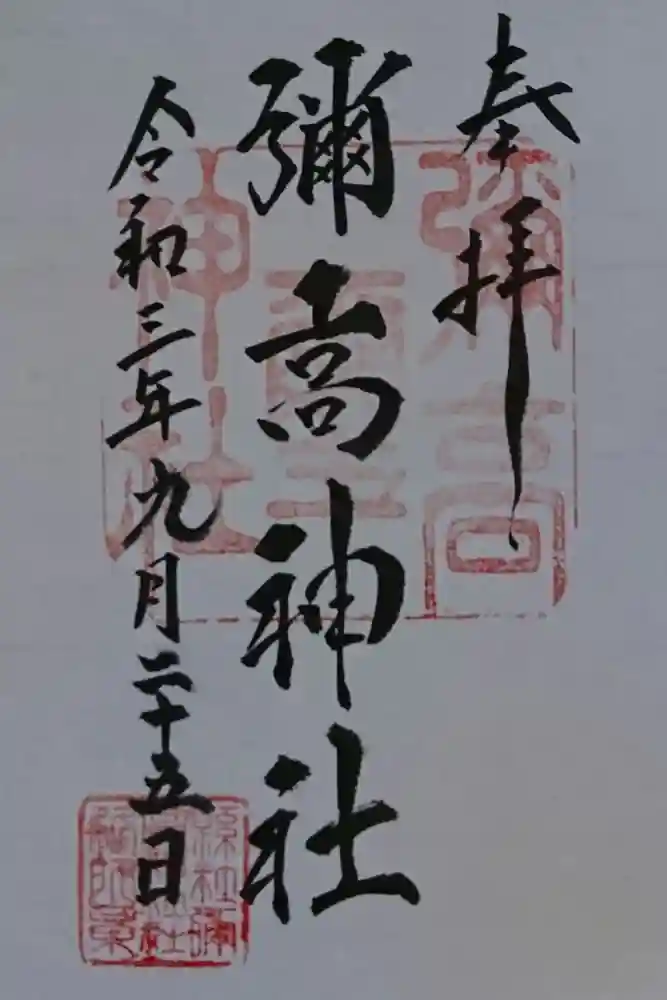 奉拝
彌高神社
令和三年九月二十五日
彌高
神社